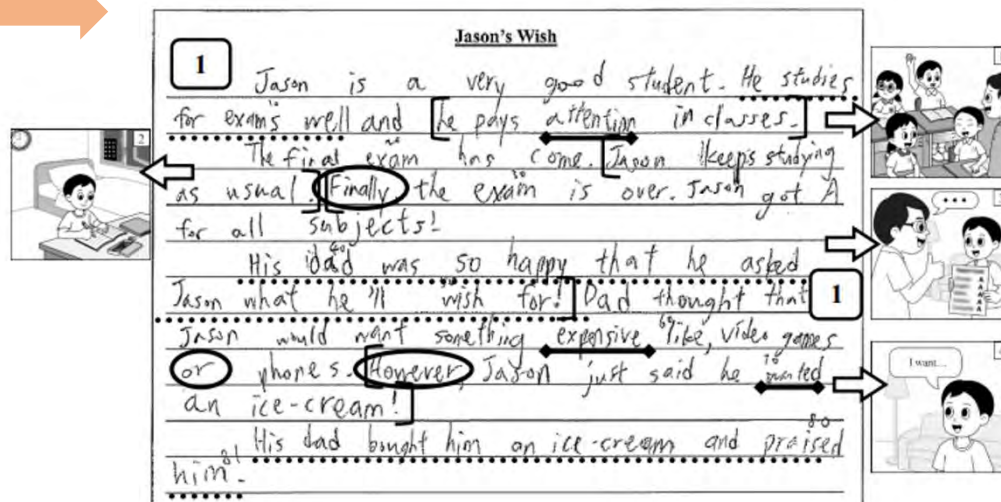 Jason's Wish
1
Jason is a very good student. He studies
for exams well and he pays attention in classes.
The final exam has come. Jason keeps studying
as usual. Finally the exam is over. Jason got A
for all subjects!
His dad was so happy that he asked
Jason what he'll wish for! Dad thought that
1
Jason would want something expensive like, video games
or phones. However, Jason just said he wanted
an ice-cream!
His dad bought him an ice-cream and praised
him.
2
...
I want....